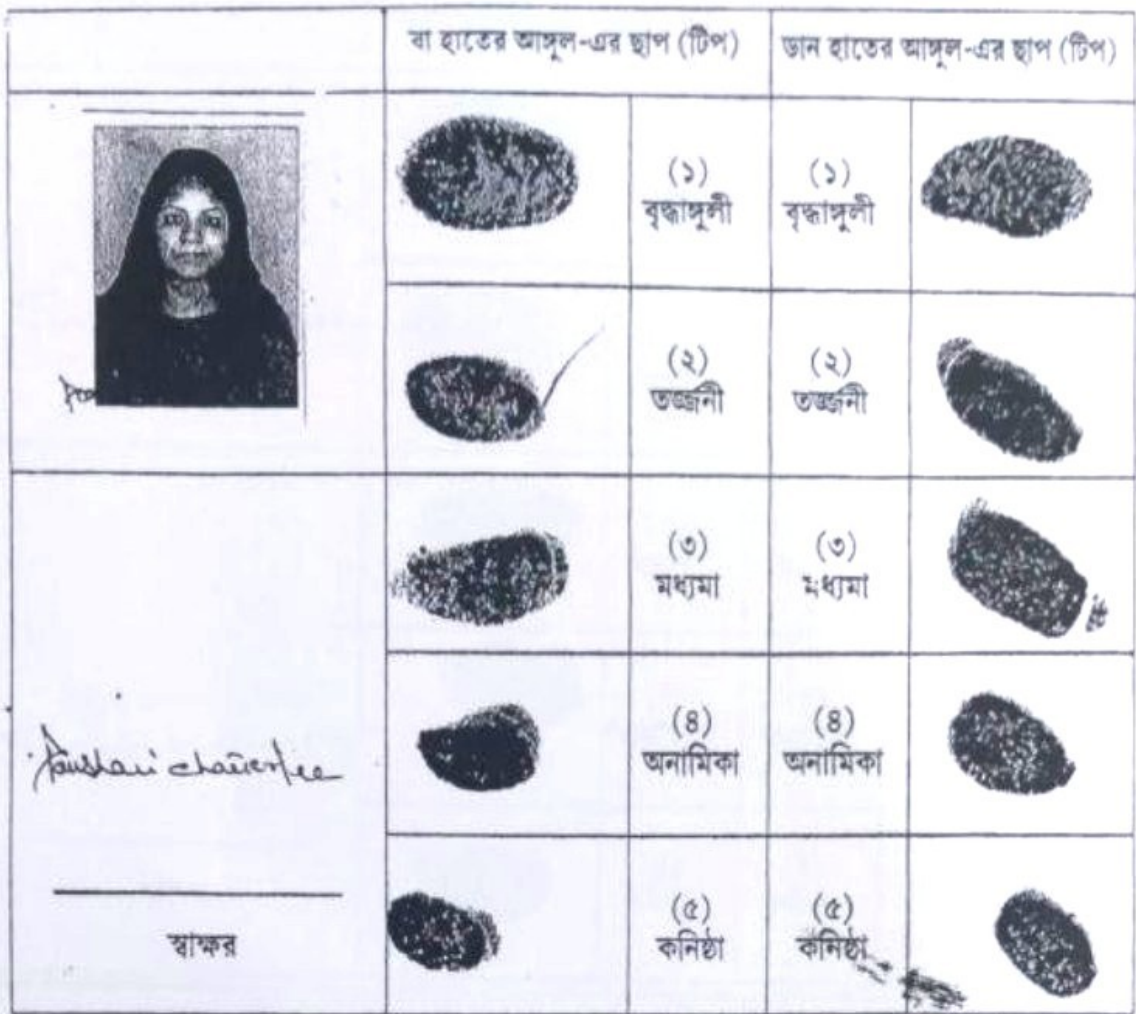 বা হাতের আঙ্গুল-এর ছাপ (টিপ)
ডান হাতের আঙ্গুল-এর ছাপ (টিপ)
(১)
বৃদ্ধাঙ্গুলী
(১)
বৃদ্ধাঙ্গুলী
(২)
তর্জ্জনী
(২)
তর্জ্জনী
(৩)
মধ্যমা
(৩)
মধ্যমা
(৪)
অনামিকা
(৪)
অনামিকা
(৫)
কনিষ্ঠা
(৫)
কনিষ্ঠা
স্বাক্ষর